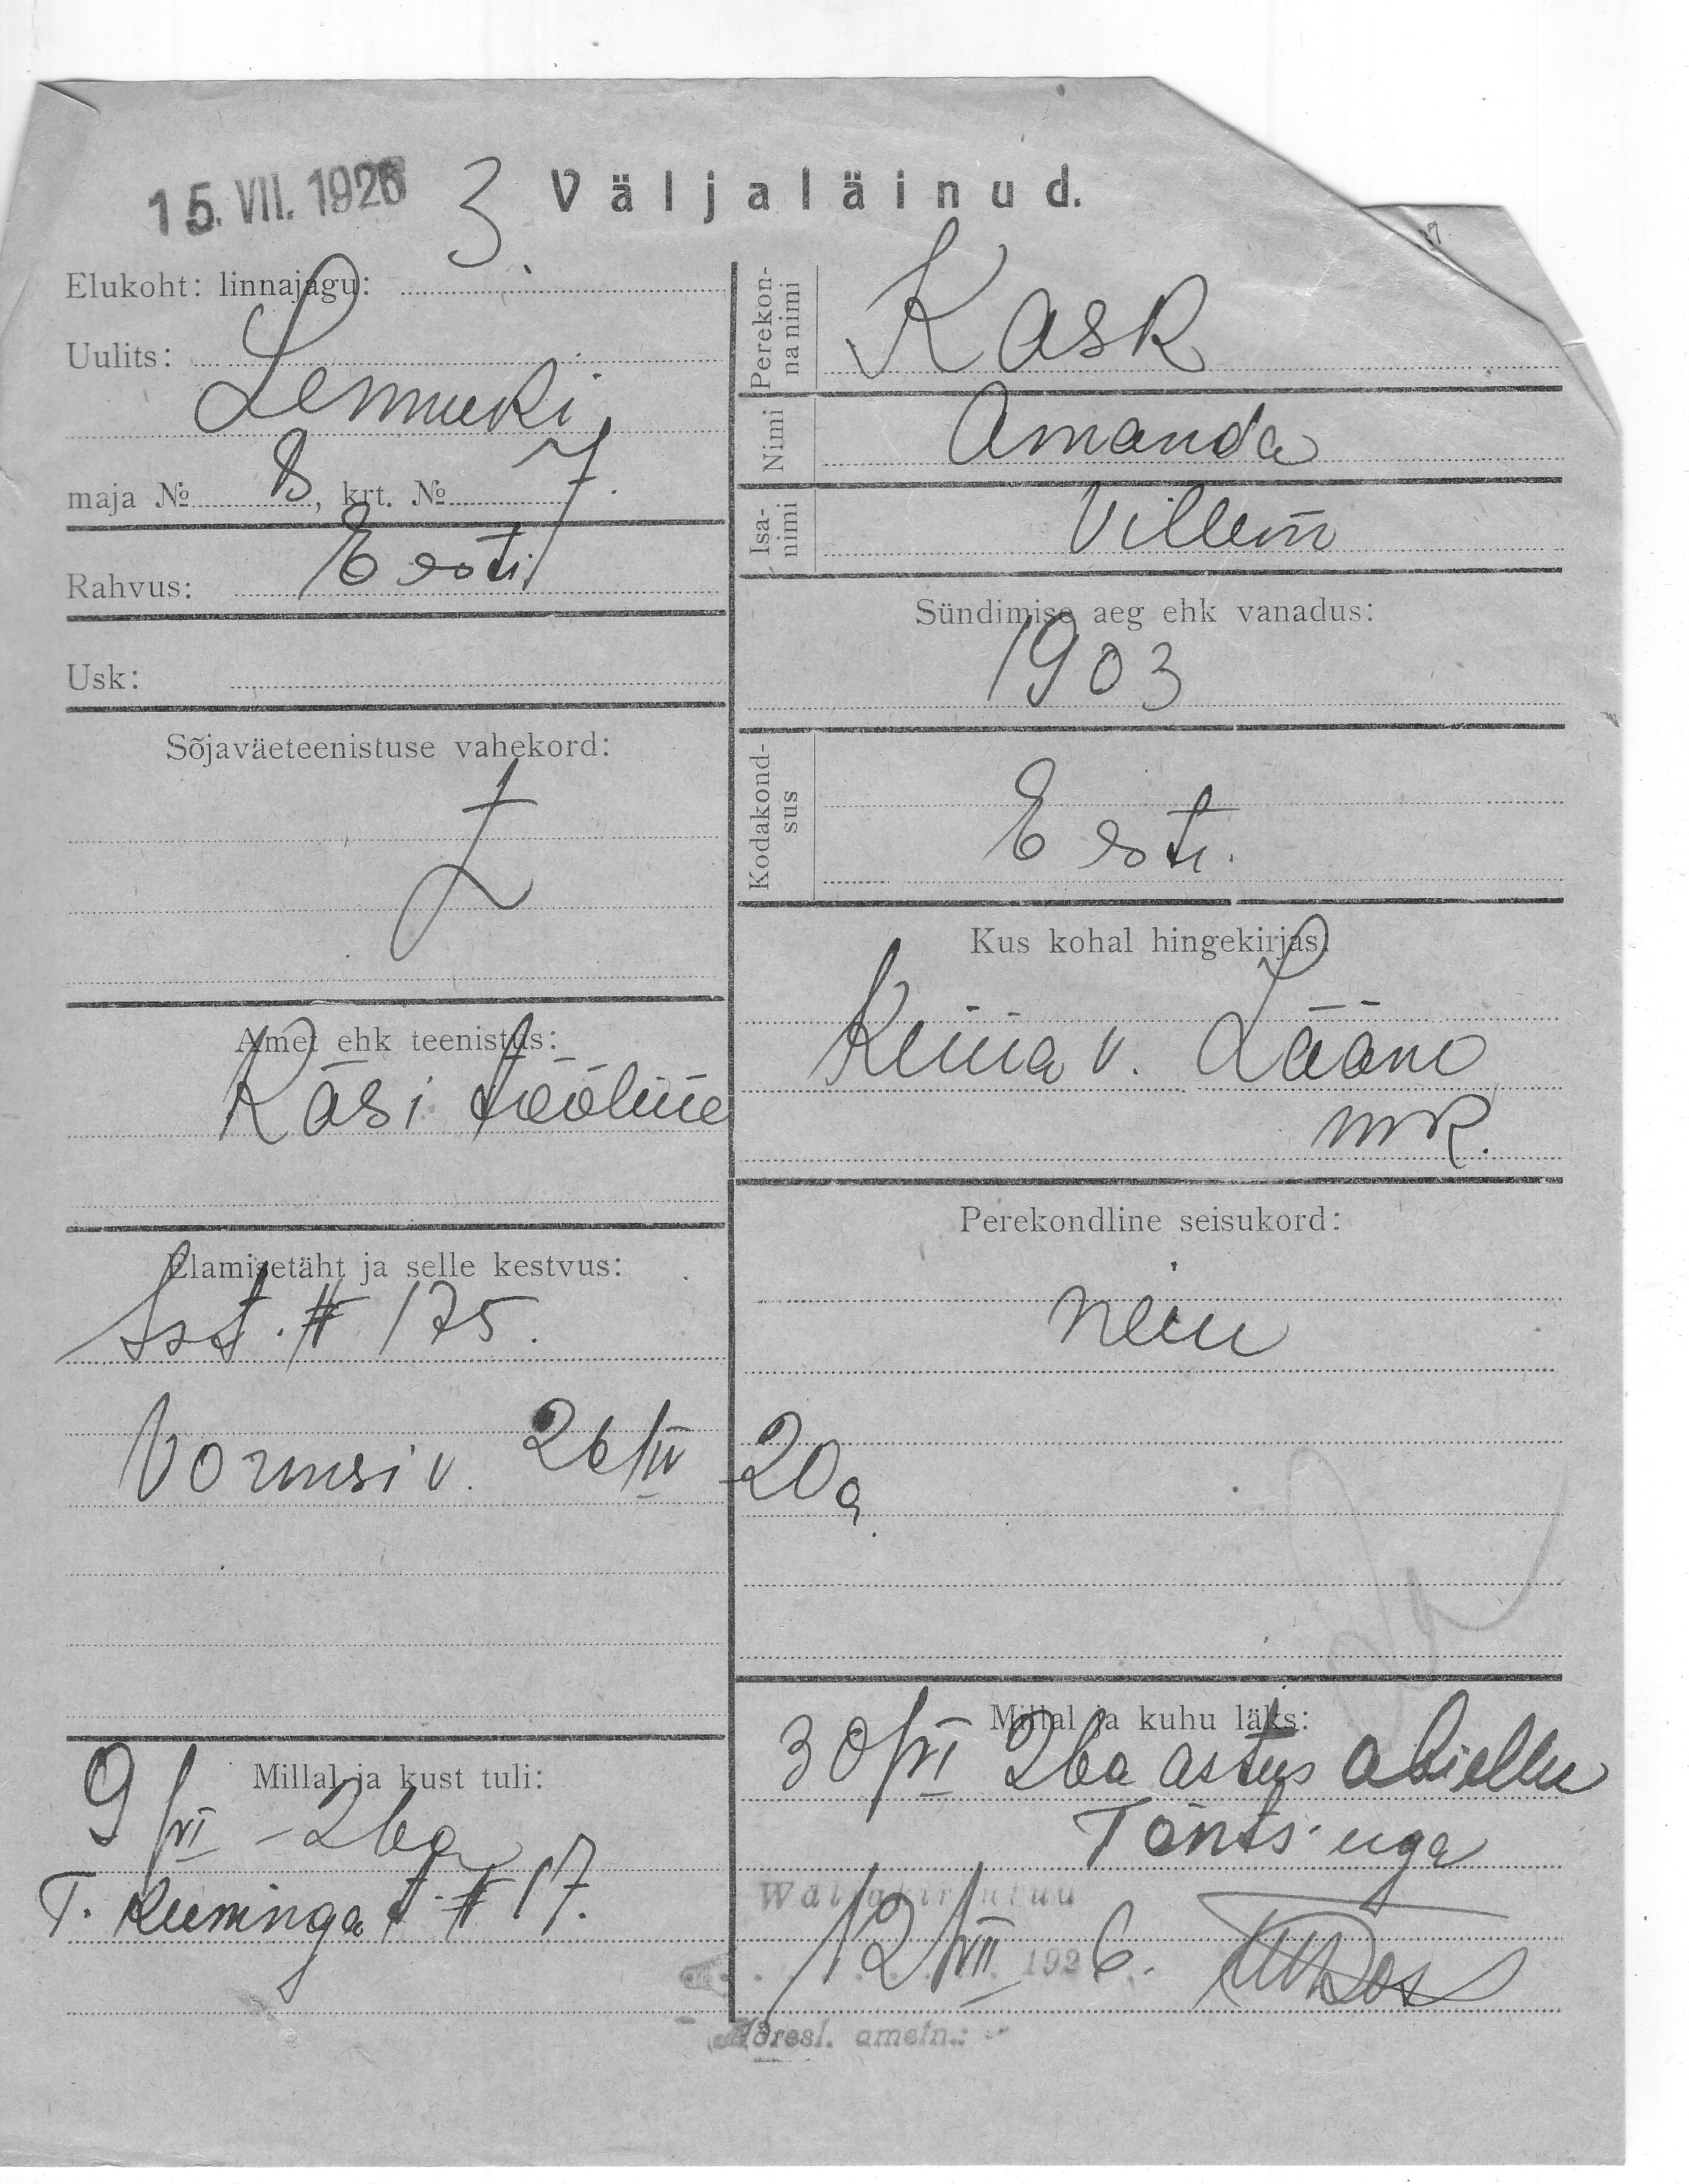 15. VII. 1926
3
Väljaläinud.
Elukoht: linnajagu:
Uulits:
Lennuki
maja № 8, krt. № 7.
Rahvus: Eesti
Usk:
Sõjaväeteenistuse vahekord:
Amet ehk teenistus:
Käsi tööline
Elamisetäht ja selle kestvus:
# 175.
Vormsi v. 26/IV -20a.
Millal ja kust tuli:
9/VI - 26a
T. Kuninga t # 17.
Perekonnanimi
Kask
Nimi
Amanda
Isanimi
Villem
Sündimise aeg ehk vanadus:
1903
Kodakondsus
Eesti.
Kus kohal hingekirjas:
v. Lääne
mk.
Perekondline seisukord:
neiu
Millal ja kuhu läks:
30/VI 26a astus abiellu
Tönts'uga
Wäljakirjutatud
12/VII 1926.
Adresl. ametn.: